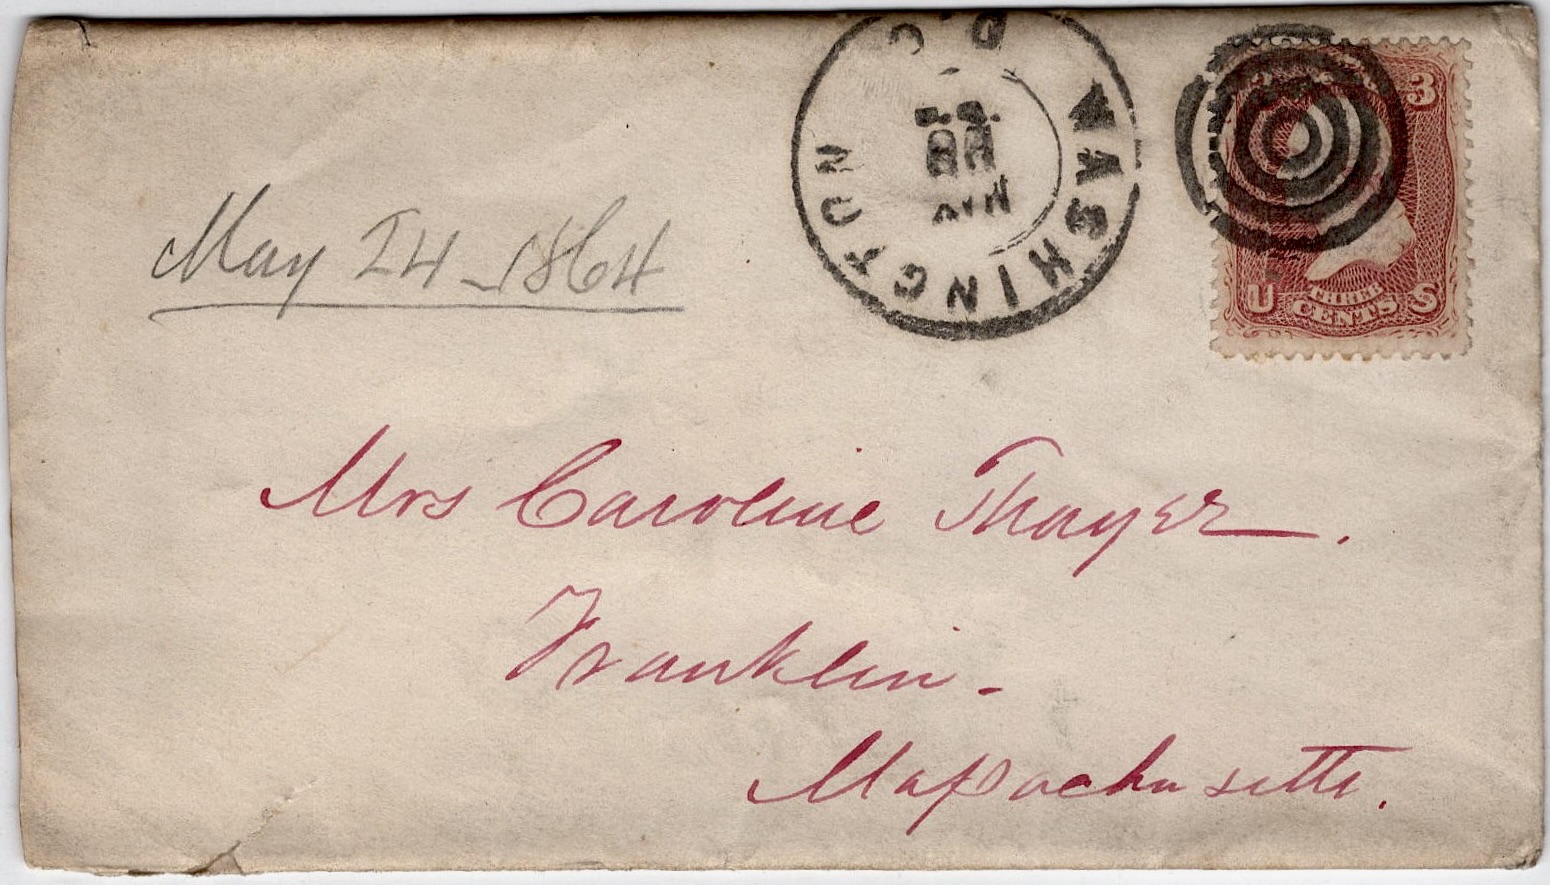 WASHINGTON D.C.
3
U THREE CENTS S
May 24 - 1864
Mrs Caroline Thayer.
Franklin -
Massachusetts.